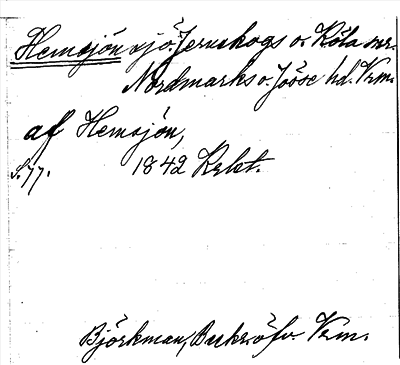 Hemsjön sjö, Jernskogs o. Köla snr.
Nordmarks o. Jösse hd. Vrm.
af Hemsjön,
S. 77. 1842 Krbt.
Björkman, Beskr. öfv. Vrm.